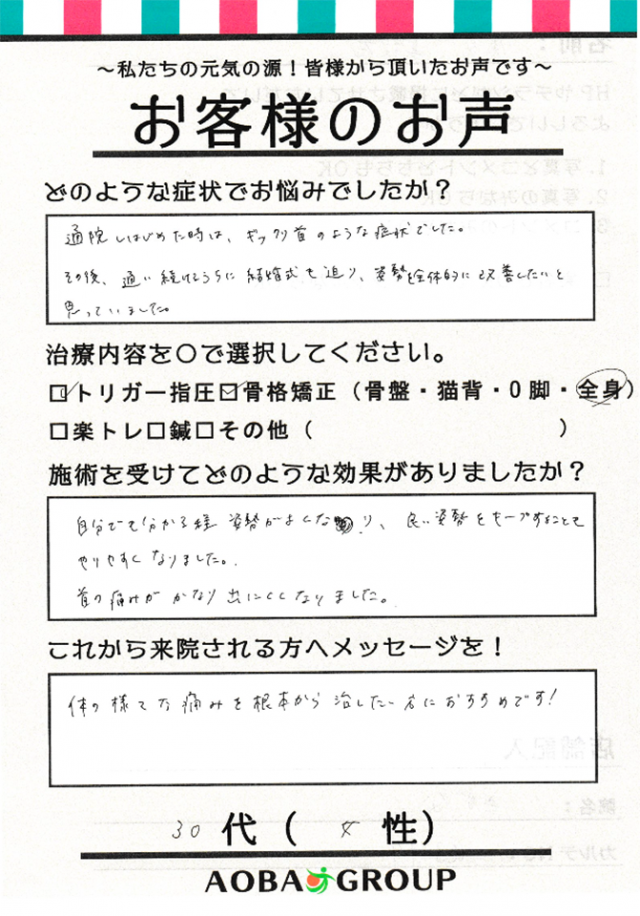 ～私たちの元気の源！皆様から頂いたお声です～
お客様のお声
どのような症状でお悩みでしたか？
通院しはじめた時は、ギックリ首のような症状でした。
その後、通い続けるうちに結婚式も迫り、姿勢を全体的に改善したいと
思っていました。
治療内容を〇で選択してください。
☑トリガー指圧☑骨格矯正（骨盤・猫背・O脚・全身）
□楽トレ□鍼□その他（　　　　　　　　　）
施術を受けてどのような効果がありましたか？
自分でも分かる程 姿勢がよくなり、良い姿勢をキープすることも
やりやすくなりました。
首の痛みが かなり出にくくなりました。
これから来院される方へメッセージを！
体の様々な痛みを根本から治したい方におすすめです！
30代（女性）
AOBA GROUP